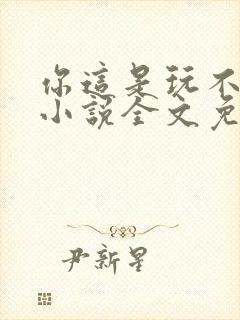 你這是玩不
小說全文免
尹新星